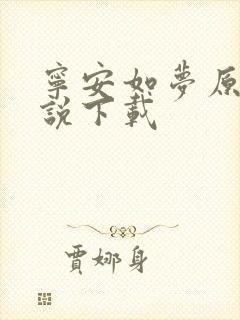 寧安如夢原
說下載
賈娜身